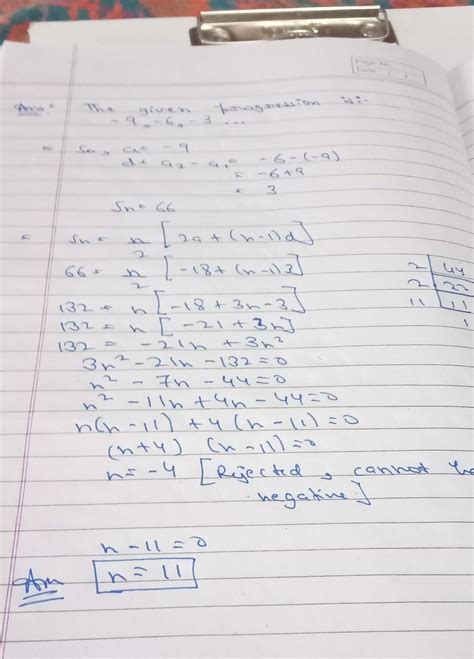 Page No.
Date
Ans: The given progression is:-
-9, -6, -3 ...
So, a = -9
d = a2 - a1 = -6-(-9)
= -6+9
= 3
Sn = 66
Sn = n/2 [2a + (n-1)d]
66 = n/2 [-18 + (n-1)3]
132 = n[-18 + 3n - 3]
132 = n[-21 + 3n]
132 = -21n + 3n²
3n² - 21n - 132 = 0
n² - 7n - 44 = 0
n² - 11n + 4n - 44 = 0
n(n-11) + 4(n-11) = 0
(n+4) (n-11) = 0
n = -4 [Rejected, cannot be
negative]
n - 11 = 0
Ans n = 11
2 44
2 22
11 11
1